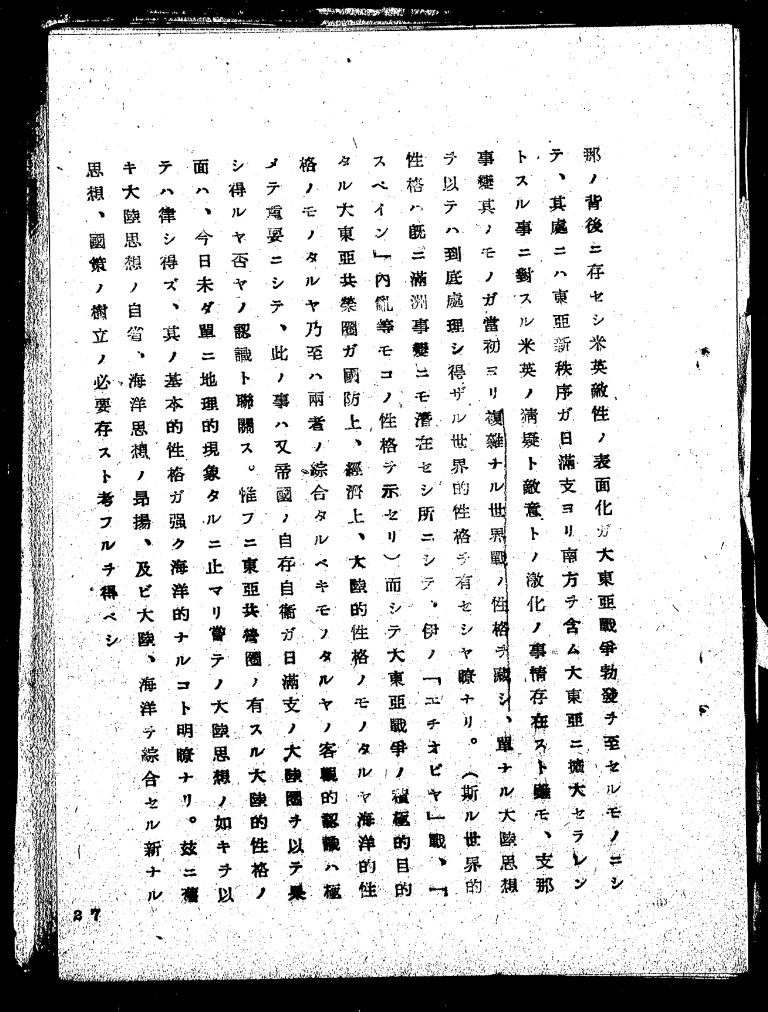 那ノ背後ニ存セシ米英敵性ノ表面化ガ大東亞戰爭勃發ヲ至セルモノニシ
テ、其處ニハ東亞新秩序ガ日滿支ヨリ南方ヲ含ム大東亞ニ擴大セラレン
トスル事ニ對スル米英ノ猜疑ト敵意トノ激化ノ事情存在スト雖モ、支那
事變其ノモノガ當初ヨリ複雜ナル世界戰ノ性格ヲ藏シ、單ナル大陸思想
ヲ以テハ到底處理シ得ザル世界的性格ヲ有セシヤ瞭ナリ。（斯ル世界的
性格ハ既ニ滿洲事變ニモ潛在セシ所ニシテ、伊ノ「エチオピヤ」戰、「
スペイン」內亂等モコノ性格ヲ示セリ）而シテ大東亞戰爭ノ積極的目的
タル大東亞共榮圈ガ國防上、經濟上、大陸的性格ノモノタルヤ海洋的性
格ノモノタルヤ乃至ハ兩者ノ綜合タルベキモノタルヤノ客觀的認識ハ極
メテ重要ニシテ、此ノ事ハ又帝國ノ自存自衞ガ日滿支ノ大陸圈ヲ以テ果
シ得ルヤ否ヤノ認識ト聯關ス。惟フニ東亞共營圈ノ有スル大陸的性格ノ
面ハ、今日未ダ單ニ地理的現象タルニ止マリ嘗テノ大陸思想ノ如キヲ以
テハ律シ得ズ、其ノ基本的性格ガ强ク海洋的ナルコト明瞭ナリ。玆ニ舊
キ大陸思想ノ自省、海洋思想ノ昂揚、及ビ大陸、海洋ヲ綜合セル新ナル
思想、國策ノ樹立ノ必要存スト考フルヲ得ベシ
27